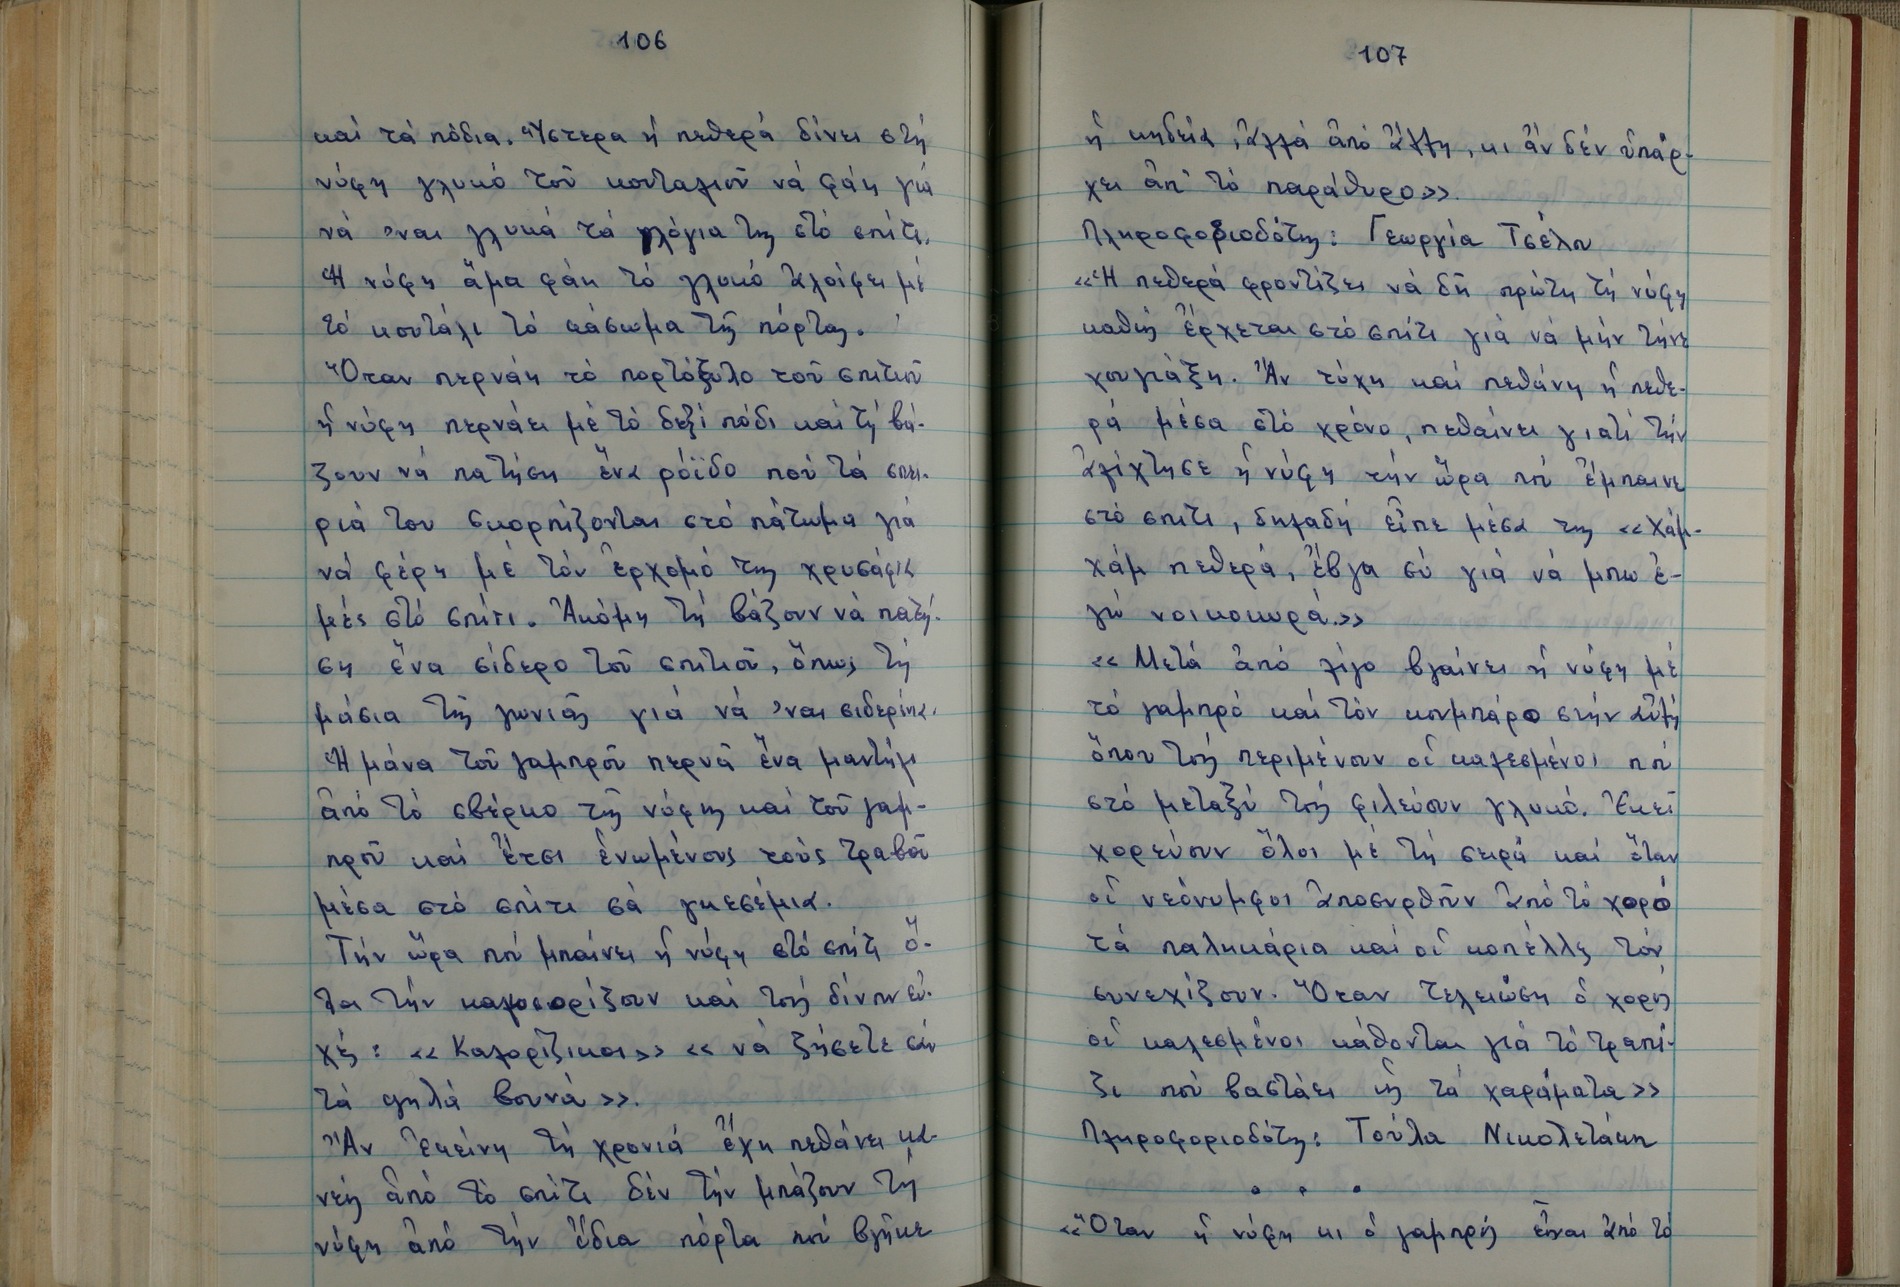 106
καί τά πόδια. Ὕστερα ἡ πεθερά δίνει στή
νύφη γλυκό τοῦ κουταλιοῦ νά φάη γιά
νά 'ναι γλυκά τά λόγια της στό σπίτι.
Ἡ νύφη ἅμα φάη τό γλυκό ἀλοίφει μέ
τό κουτάλι τό κάσωμα τῆς πόρτας.
Ὅταν περνάη τό πορτόξυλο τοῦ σπιτιοῦ
ἡ νύφη περνάει μέ τό δεξί πόδι καί τή βά-
ζουν νά πατήση ἕνα ρόϊδο πού τά σπει-
ριά του σκορπίζονται στό πάτωμα γιά
νά φέρη μέ τόν ἐρχομό της χρυσάφια
μές στό σπίτι. Ἀκόμη τή βάζουν νά πατή-
ση ἕνα σίδερο τοῦ σπιτιοῦ, ὅπως τή
μάσια τῆς γωνιᾶς γιά νά 'ναι σιδερένια.
Ἡ μάνα τοῦ γαμπροῦ περνᾶ ἕνα μαντήλι
ἀπό τό σβέρκο τῆς νύφης καί τοῦ γαμ-
προῦ καί ἔτσι ἑνωμένους τούς τραβοῦ
μέσα στό σπίτι σά γκεσέμια.
Τήν ὥρα πού μπαίνει ἡ νύφη στό σπίτι ὅ-
λοι τήν καλωσορίζουν καί τούς δίνουν εὐ-
χές: «Καλορίζικοι» «νά ζήσετε σάν
τά ψηλά βουνά».
Ἄν ἐκείνη τή χρονιά ἔχη πεθάνει κα-
νείς ἀπό τό σπίτι δέν τήν μπάζουν τή
νύφη ἀπό τήν ἴδια πόρτα πού βγῆκε
107
ἡ κηδεία, ἀλλά ἀπό ἄλλη, κι ἄν δέν ὑπάρ-
χει ἀπ' τό παράθυρο».
Πληροφοριοδότης: Γεωργία Τσέλου
«Ἡ πεθερά φροντίζει νά δῆ πρώτη τή νύφη
καθώς ἔρχεται στό σπίτι γιά νά μήν τήνε
χουγιάξη. Ἄν τύχη καί πεθάνη ἡ πεθε-
ρά μέσα στό χρόνο, πεθαίνει γιατί τήν
ἀλίχτησε ἡ νύφη τήν ὥρα πού ἔμπαινε
στό σπίτι, δηλαδή εἶπε μέσα της «χάμ-
χάμ πεθερά, ἔβγα σύ γιά νά μπω ἐ-
γώ νοικοκυρά.»
«Μετά ἀπό λίγο βγαίνει ἡ νύφη μέ
τό γαμπρό καί τόν κουμπάρο στήν αὐλή
ὅπου τούς περιμένουν οἱ καλεσμένοι πού
στό μεταξύ τούς φιλεύουν γλυκό. Ἐκεῖ
χορεύουν ὅλοι μέ τή σειρά καί ὅταν
οἱ νεόνυμφοι ἀποσυρθοῦν ἀπό τό χορό
τά παληκάρια καί οἱ κοπέλλες τόν
συνεχίζουν. Ὅταν τελειώση ὁ χορός
οἱ καλεσμένοι κάθονται γιά τό τραπέ-
ζι πού βαστάει ὥς τά χαράματα»
Πληροφοριοδότης: Τούλα Νικολετάκη
. . .
«Ὅταν ἡ νύφη κι ὁ γαμπρός εἶναι ἀπό τό